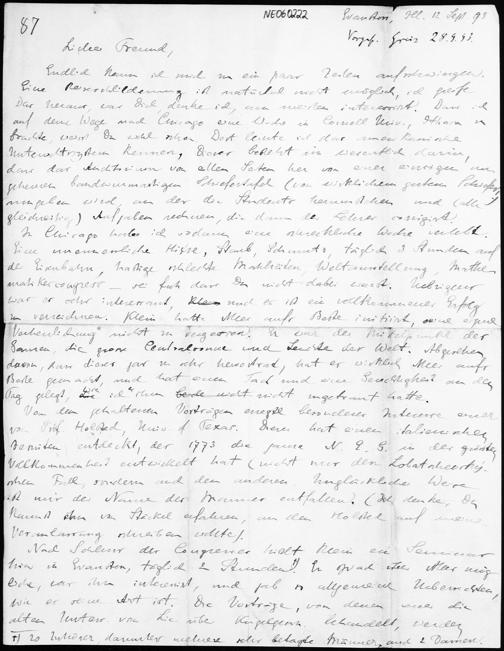 NE060222
87
Evanston, Ill. 12 Sept. 93
Lieber Freund,
Endlich kann ich mich zu ein paar Zeilen aufschwingen.
Eine Reiseschilderung ist natürlich nicht möglich, ich greife
Das heraus, was Dich denke ich, am meisten interessirt. Dass ich
auf dem Wege nach Chicago eine Woche in Cornell Univ., Ithaca
brachte, weisst Du wohl schon. Dort lernte ich das amerikanische
Unterrichtssystem kennen, besteht im wesentlich darin,
dass das Auditorium von allen Seiten her von einer einzigen un
geheuren bandwurmartigen Schiefertafel (von wirklichem gutem
umgeben wird, an der die Students herumstehen und (alle
gleichzeitig) Aufgaben rechnen, die dann der Lehrer corrigirt.
In Chicago habe ich sodann eine schreckliche Woche verlebt.
Eine unermessliche Hitze, Staub, Schmutz, täglich 3 Stunden auf
der Eisenbahn, hastige schlechte Mahlzeiten, Weltausstellung, Mathe-
matikercongress — sei froh dass Du nicht dabei warst. Uebrigens
war er sehr interessant, und es ist ein vollkommener Erfolg
zu verzeichnen. Klein hatte Alles aufs Beste initiirt, seine eigene
nicht zu vergessen. Er war der Mittelpunkt der
Sonnen, die grosse Centralsonne und Leuchte der Welt. Abgesehen
davon, dass dieses gar zu sehr hervortrat, hat er wirklich Alles aufs
Beste gemacht, und hat einen Tact und eine Geschicktheit an den
Tag gelegt, wie ich ihm wohl nicht zugetraut hätte.
Von den gehaltenen Vorträgen erregte besonderes Interesse einer
von Prof. Halsted, Univ. of Texas. Dieser hat einen italienischen
Jesuiten entdeckt, der 1773 die ganze N. E. G. in der grössten
Vollkommenheit entwickelt hat (nicht nur den Lobatcheffsky
schen Fall, sondern auch den anderen. Unglückliche Weise
ist mir der Name des Mannes entfallen. (Ich denke, Du
kannst ihn von Stäckel erfahren, an den Halsted auf meine
Veranlassung schreiben wollte).
Nach Schluss der Congresses hielt Klein ein Seminar
hier in Evanston, täglich 2 Stunden. Er sprach über Alles mög-
liche, was ihn interessirt, und gab so allgemeine Uebersichten,
wie es seine Art ist. Die Vorträge, von denen einer die
alten Unters. von Lie über Kugelgeom. behandelt, werden
20 Zuhörer darunter mehrere sehr betagte Männer, und 2 Damen.